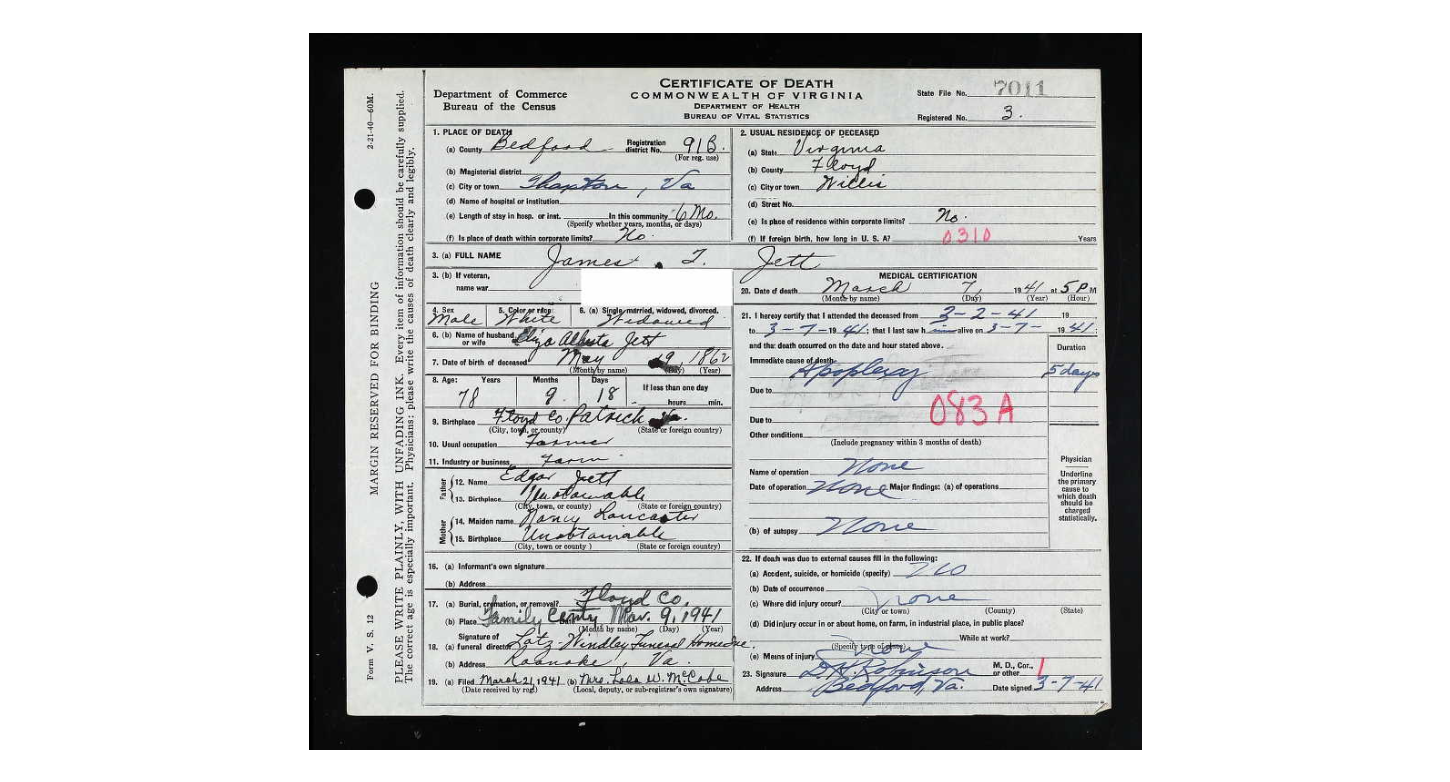 CERTIFICATE OF DEATH
COMMONWEALTH OF VIRGINIA
DEPARTMENT OF HEALTH
BUREAU OF VITAL STATISTICS
Department of Commerce
Bureau of the Census
State File No. 7011
Registered No. 3.
2-21-40—60M.
MARGIN RESERVED FOR BINDING
Form V. S. 12
PLEASE WRITE PLAINLY, WITH UNFADING INK. Every item of information should be carefully supplied.
The correct age is especially important. Physicians: please write the causes of death clearly and legibly.
1. PLACE OF DEATH
(a) County Bedford Registration district No. 91B.
(For reg. use)
(b) Magisterial district
(c) City or town Thaxton, Va
(d) Name of hospital or institution
(e) Length of stay in hosp. or inst. In this community 6 Mo.
(Specify whether years, months, or days)
(f) Is place of death within corporate limits? No.
2. USUAL RESIDENCE OF DECEASED
(a) State Virginia
(b) County Floyd
(c) City or town Willis
(d) Street No.
(e) Is place of residence within corporate limits? No.
(f) If foreign birth, how long in U. S. A? 0310 Years
3. (a) FULL NAME James T. Jett
3. (b) If veteran,
name war
4. Sex Male 5. Color or race White 6. (a) Single, married, widowed, divorced, Widowed
6. (b) Name of husband or wife Eliza Alberta Jett
7. Date of birth of deceased May 19, 1862
(Month by name) (Day) (Year)
8. Age: Years 78 Months 9 Days 18 If less than one day
hours min.
9. Birthplace Floyd Co. Patrick Va.
(City, town, or county) (State or foreign country)
10. Usual occupation Farmer
11. Industry or business Farm
Father
12. Name Edgar Jett
13. Birthplace Unobtainable
(City, town, or county) (State or foreign country)
Mother
14. Maiden name Nancy Lancaster
15. Birthplace Unobtainable
(City, town or county ) (State or foreign country)
16. (a) Informant's own signature
(b) Address
17. (a) Burial, cremation, or removal? Floyd Co.
(b) Place Family Cemty Date Mar. 9, 1941
(Month by name) (Day) (Year)
18. Signature of
(a) funeral director Lotz-Windley Funeral Home Inc.
(b) Address Roanoke, Va.
19. (a) Filed March 21, 1941 (b) Mrs. Lola W. McCabe
(Date received by reg) (Local, deputy, or sub-registrar's own signature)
MEDICAL CERTIFICATION
20. Date of death March 7, 1941 at 5 P M
(Month by name) (Day) (Year) (Hour)
21. I hereby certify that I attended the deceased from 3-2-41 19
to 3-7-1941; that I last saw h im alive on 3-7- 1941;
and the death occurred on the date and hour stated above.
Duration
Immediate cause of death Apoplexy 5 days
Due to
Due to 083A
Other conditions
(Include pregnancy within 3 months of death)
Name of operation None
Date of operation None Major findings: (a) of operations
(b) of autopsy None
Physician
Underline the primary cause to which death should be charged statistically.
22. If death was due to external causes fill in the following:
(a) Accident, suicide, or homicide (specify) no
(b) Date of occurrence
(c) Where did injury occur? none
(City or town) (County) (State)
(d) Did injury occur in or about home, on farm, in industrial place, in public place?
While at work?
(Specify type of place)
(e) Means of injury none
23. Signature D. H. Robinson M. D., Cor., or other 1
Address Bedford, Va. Date signed 3-7-41